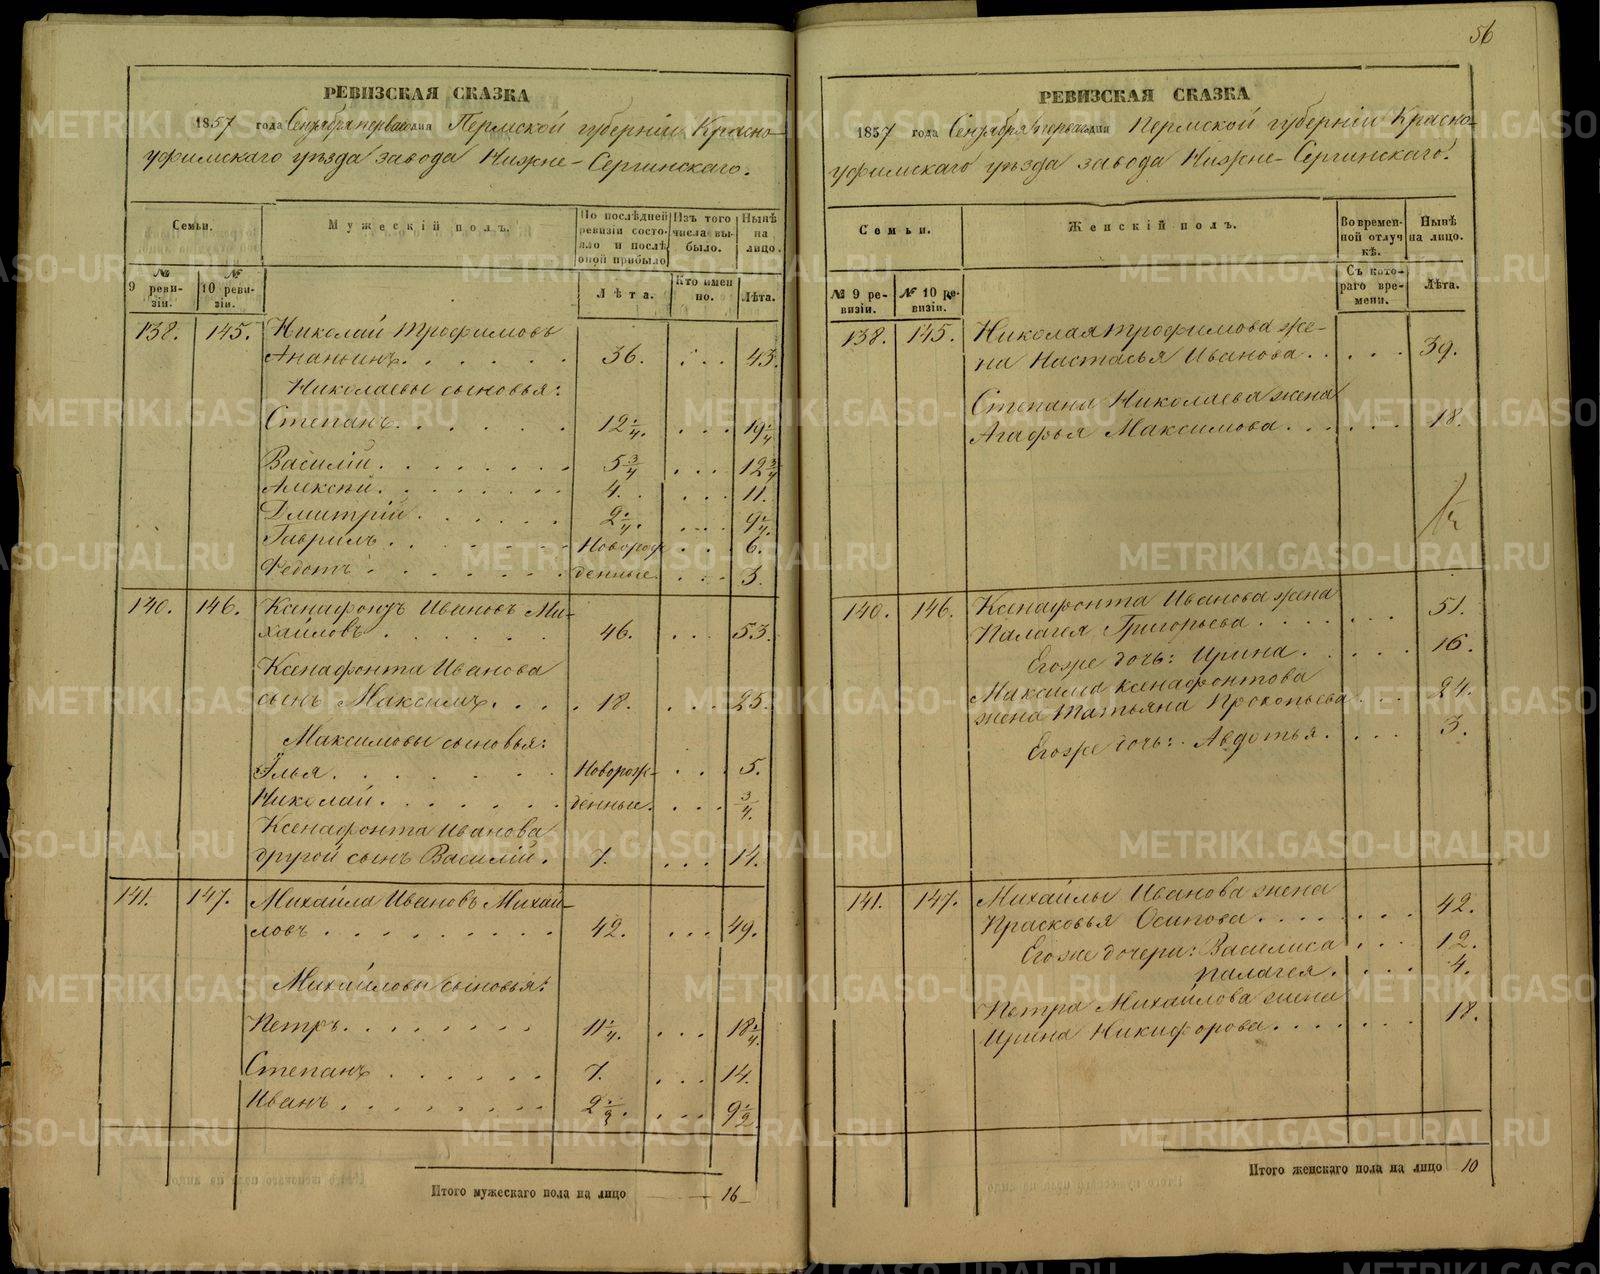 56
РЕВИЗСКАЯ СКАЗКА
1857 года Сентября первого дня Пермской губерніи Красно-
уфимскаго уѣзда завода Нижне-Сергинскаго.
Семьи.
Мужескій полъ.
По послѣдней ревизіи состояло и послѣ оной прибыло
Изъ того числа выбыло.
Нынѣ на лицо.
№ 9 ревизіи.
№ 10 ревизіи.
Лѣта.
Кто именно.
Лѣта.
138. 145. Николай Трофимовъ
Ананьинъ. 36. 43.
Николаевы сыновья:
Степанъ. 12 1/4. 19 1/4
Василій. 5 3/4 12 3/4
Алексѣй. 4. 11.
Дмитрій. 2 1/4. 9 1/4.
Гаврилъ. Новорож- 6.
Федотъ. денные. 3.
140. 146. Ксенафонтъ Ивановъ Ми-
хайловъ. 46. 53.
Ксенафонта Иванова
сынъ Максимъ. 18. 25.
Максимовы сыновья:
Илья. Новорож- 5.
Николай. денные. 3/4.
Ксенафонта Иванова
другой сынъ Василій. 7. 14.
141. 147. Михайла Ивановъ Михай-
ловъ. 42. 49.
Михайловы сыновья:
Петръ. 11 1/4. 18 1/4.
Степанъ. 7. 14.
Иванъ. 2 1/2. 9 1/2.
Итого мужескаго пола на лицо 16
РЕВИЗСКАЯ СКАЗКА
1857 года Сентября первого дня Пермской губерніи Красно-
уфимскаго уѣзда завода Нижне-Сергинскаго.
Семьи.
Женскій полъ.
Во временной отлучкѣ.
Нынѣ на лицо.
№ 9 ревизіи.
№ 10 ревизіи.
Съ котораго времени.
Лѣта.
138. 145. Николая Трофимова же-
на Настасья Иванова. 39.
Степана Николаева жена
Агафья Максимова. 18.
140. 146. Ксенафонта Иванова жена
Палагея Григорьева. 51.
Его же дочь: Ирина. 16.
Максима Ксенафонтова
жена Татьяна Прокопьева 24.
Его же дочь: Авдотья. 3.
141. 147. Михайлы Иванова жена
Прасковья Осипова. 42.
Его же дочери: Василиса 12.
Палагея. 4.
Петра Михайлова жена
Ирина Никифорова. 18.
Итого женскаго пола на лицо 10
METRIKI.GASO-URAL.RU